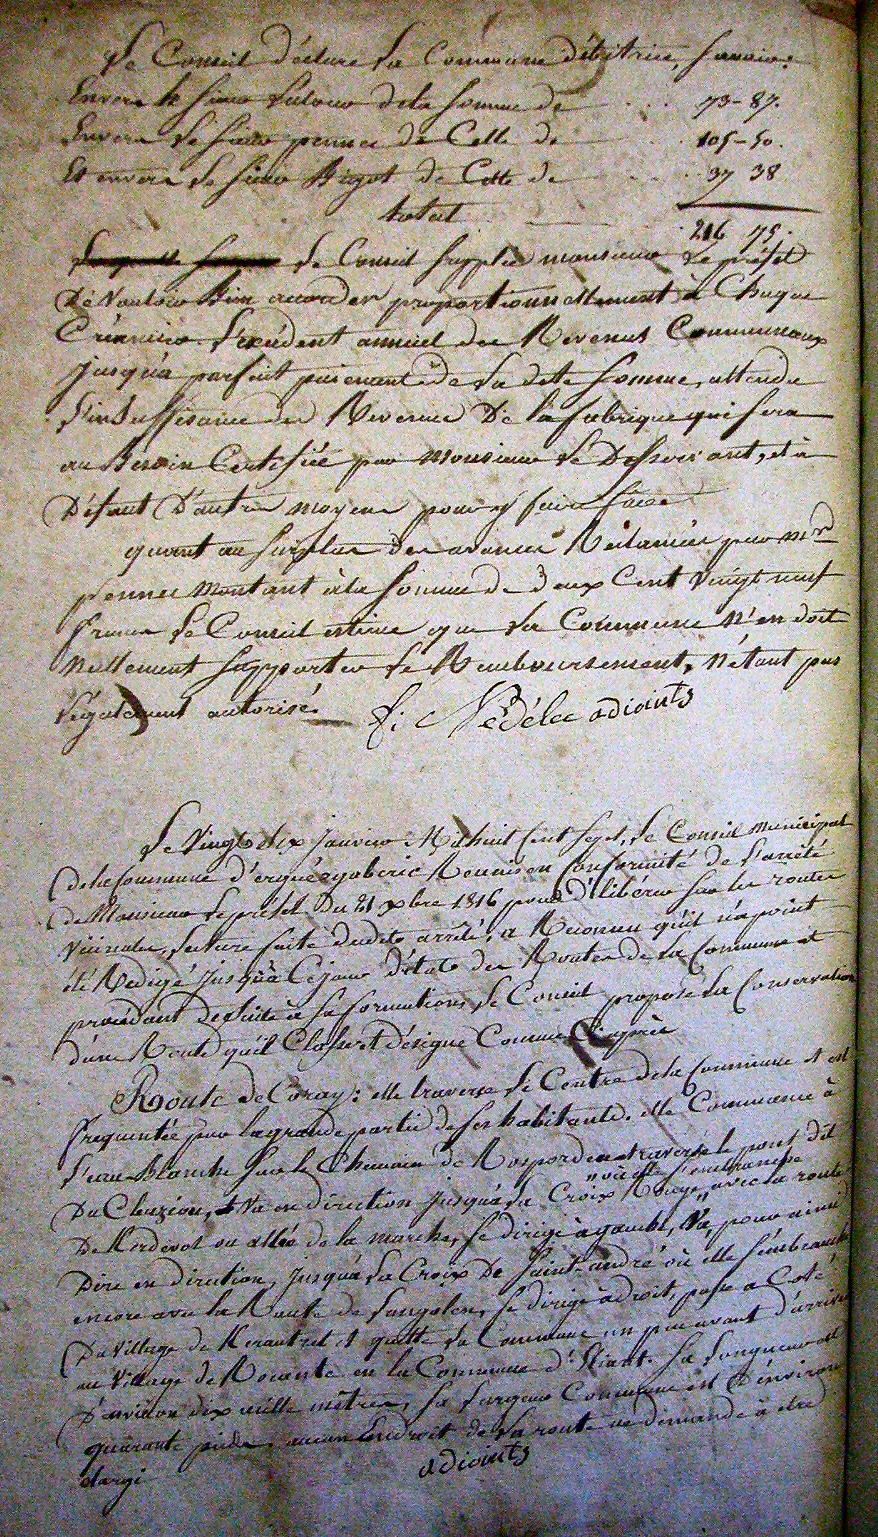 Le Conseil déclare la Commune débitrice, Savoir:
Envers le Sieur de la Somme de 73-87.
Envers le Sieur pennec de Celle de 105-50.
Et envers le Sieur Bigot de Celle de 37 38
total 216 75.
Le Conseil Supplie monsieur Le préfet
De Vouloir Bien accorder proportionnellement à Chaque
Créancier l'exédent annuel des Revenus Communaux
jusqu'à parfait paiement de la dete Somme, attendu
l'insuffisance des Revenus De la fabrique qui Sera
au Besoin Certifiée par Monsieur le Desservant, et à
Défaut D'autres moyens pour y faire face
quant au Surplus des avances Réclamées par Mr
pennec Montant à la Somme de deux Cent Vingt neuf
francs le Conseil estime que la Commune N'en doit
Nullement Supporter le Remboursement, N'étant pas
légalement autorisé.
f: Nédélec adioints
Le Vingt dix janvier Mil huit Cent Sept, le Conseil Municipal
de la Commune d'ergué-gaberic Réunis en Conformité de l'arrêté
de Monsieur le préfet Du 21 xbre 1816 pour délibérer Sur les routes
Vicinales, lecture faite dudit arrêté, a Reconnu qu'il n'a point
été Redigé jusqu'à Ce jour d'état des Routes de la Commune et
procédant de suite à Sa formation, le Conseil propose la Conservation
d'une Route qu'il Classe et désigne Comme Ci après
Route de Coray: elle traverse le Centre de la Commune et est
frequentée par la grande partie de Ses habitants. elle Commence à
l'eau Blanche Sur le Chemin de Rosporden traverse le pont dit
Du Cleuziou, Va en direction jusqu'à la Croix Rouge, "où elle S'embranche" avec la route
De Kerdevot ou allée de la marche, Se dirige à gauche, Va, pour ainsi
Dire en direction, jusqu'à la Croix De Saint andré où elle S'embranche
encore avec la Route de Langolen, Se dirige à droit, passe à Coté
Du Village de Kerautret et quitte la Commune un peu avant d'arriver
au Village de en la Commune d'Eliant. Sa longueur est
D'environ dix mille mètres, Sa largeur Commune est d'environ
quarante pieds, aucun Endroit de la route ne demande à être
elargi
adioints